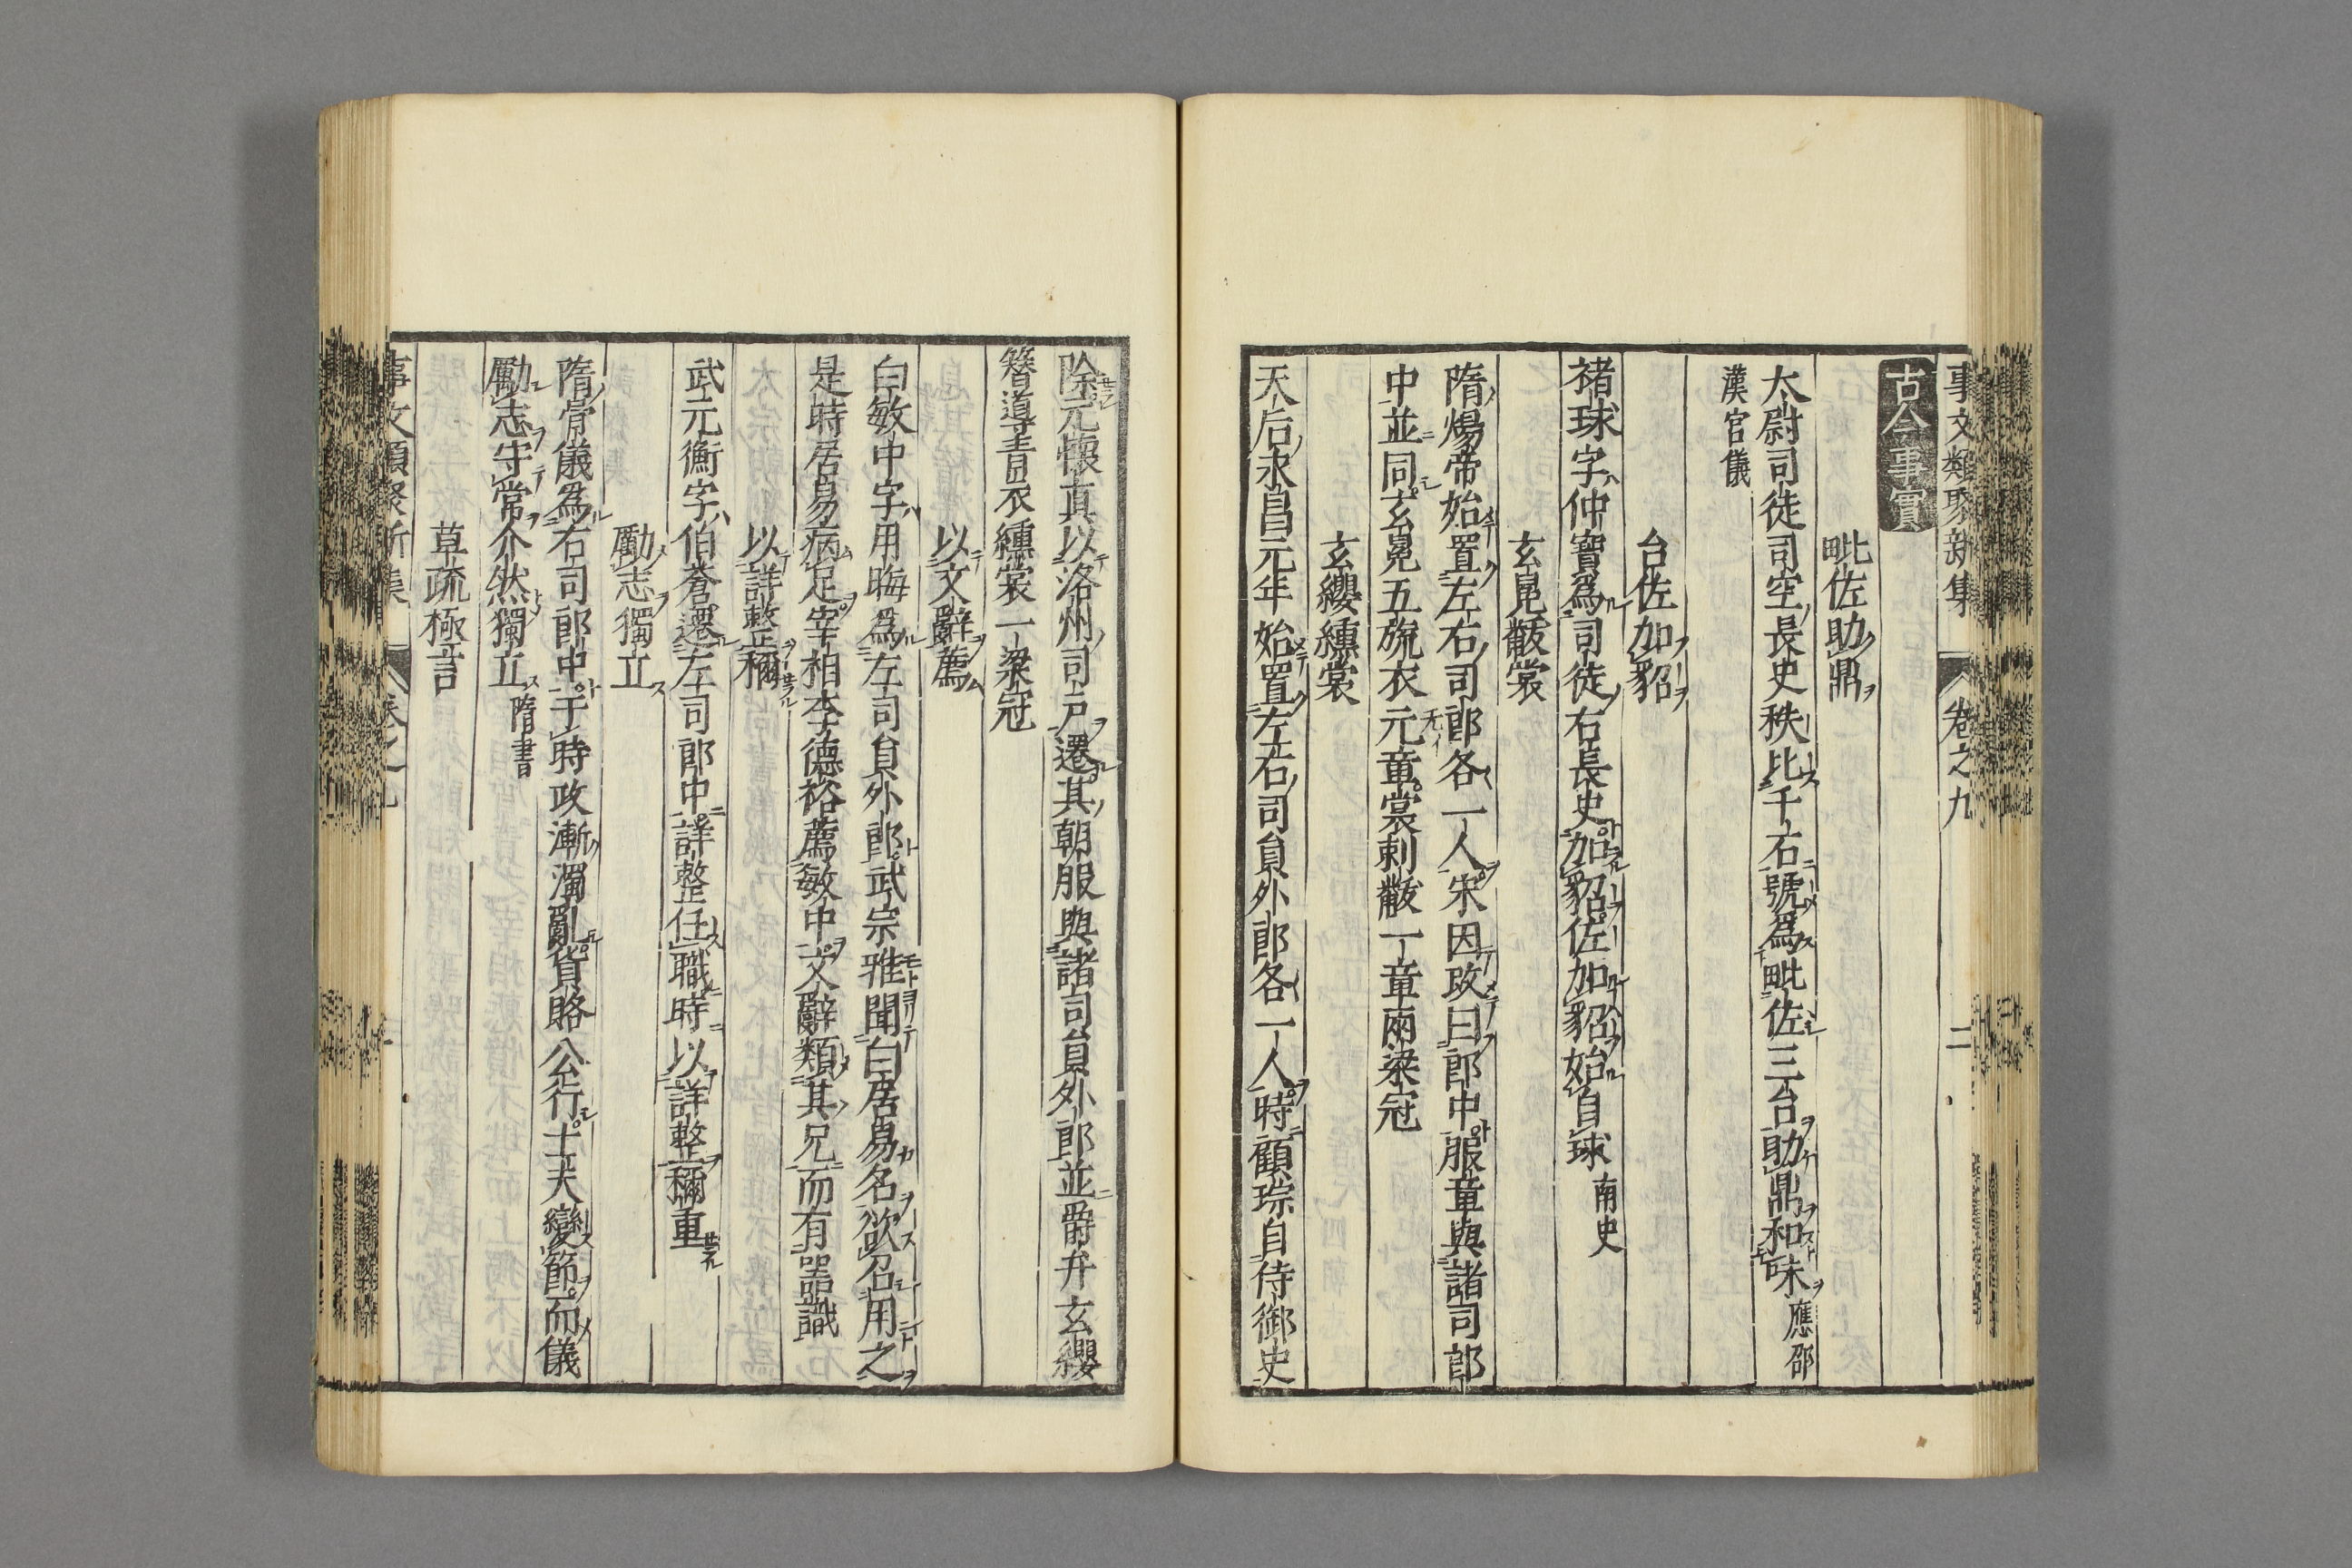 事文類聚新集 卷之九 二
古今事實
毗佐助鼎
太尉司徒司空長史秩比千石號爲毗佐三台助鼎和味應邵
漢官儀
台佐加貂
褚球字仲寶爲司徒右長史加貂佐加貂始自球南史
玄冕黻裳
隋煬帝始置左右司郎各一人宋因改曰郎中服章與諸司郎
中並同玄冕五旒衣元章裳刺黻一章兩梁冠
玄纓纁裳
天后永昌元年始置左右司員外郎各一人時顧琮自侍御史
除元懷真以洛州司戶遷其朝服與諸司員外郎並爵弁玄纓
簪導青衣纁裳一梁冠
以文辭薦
白敏中字用晦爲左司員外郎武宗雅聞白居易名欲召用之
是時居易病足宰相李德裕薦敏中文辭類其兄而有器識
以詳整稱
武元衡字伯蒼遷左司郎中詳整任職時以詳整稱重
勵志獨立
隋骨儀爲右司郎中于時政漸濁亂貨賂公行士夫變節而儀
勵志守常介然獨立隋書
草疏極言
事文類聚新集 卷之九